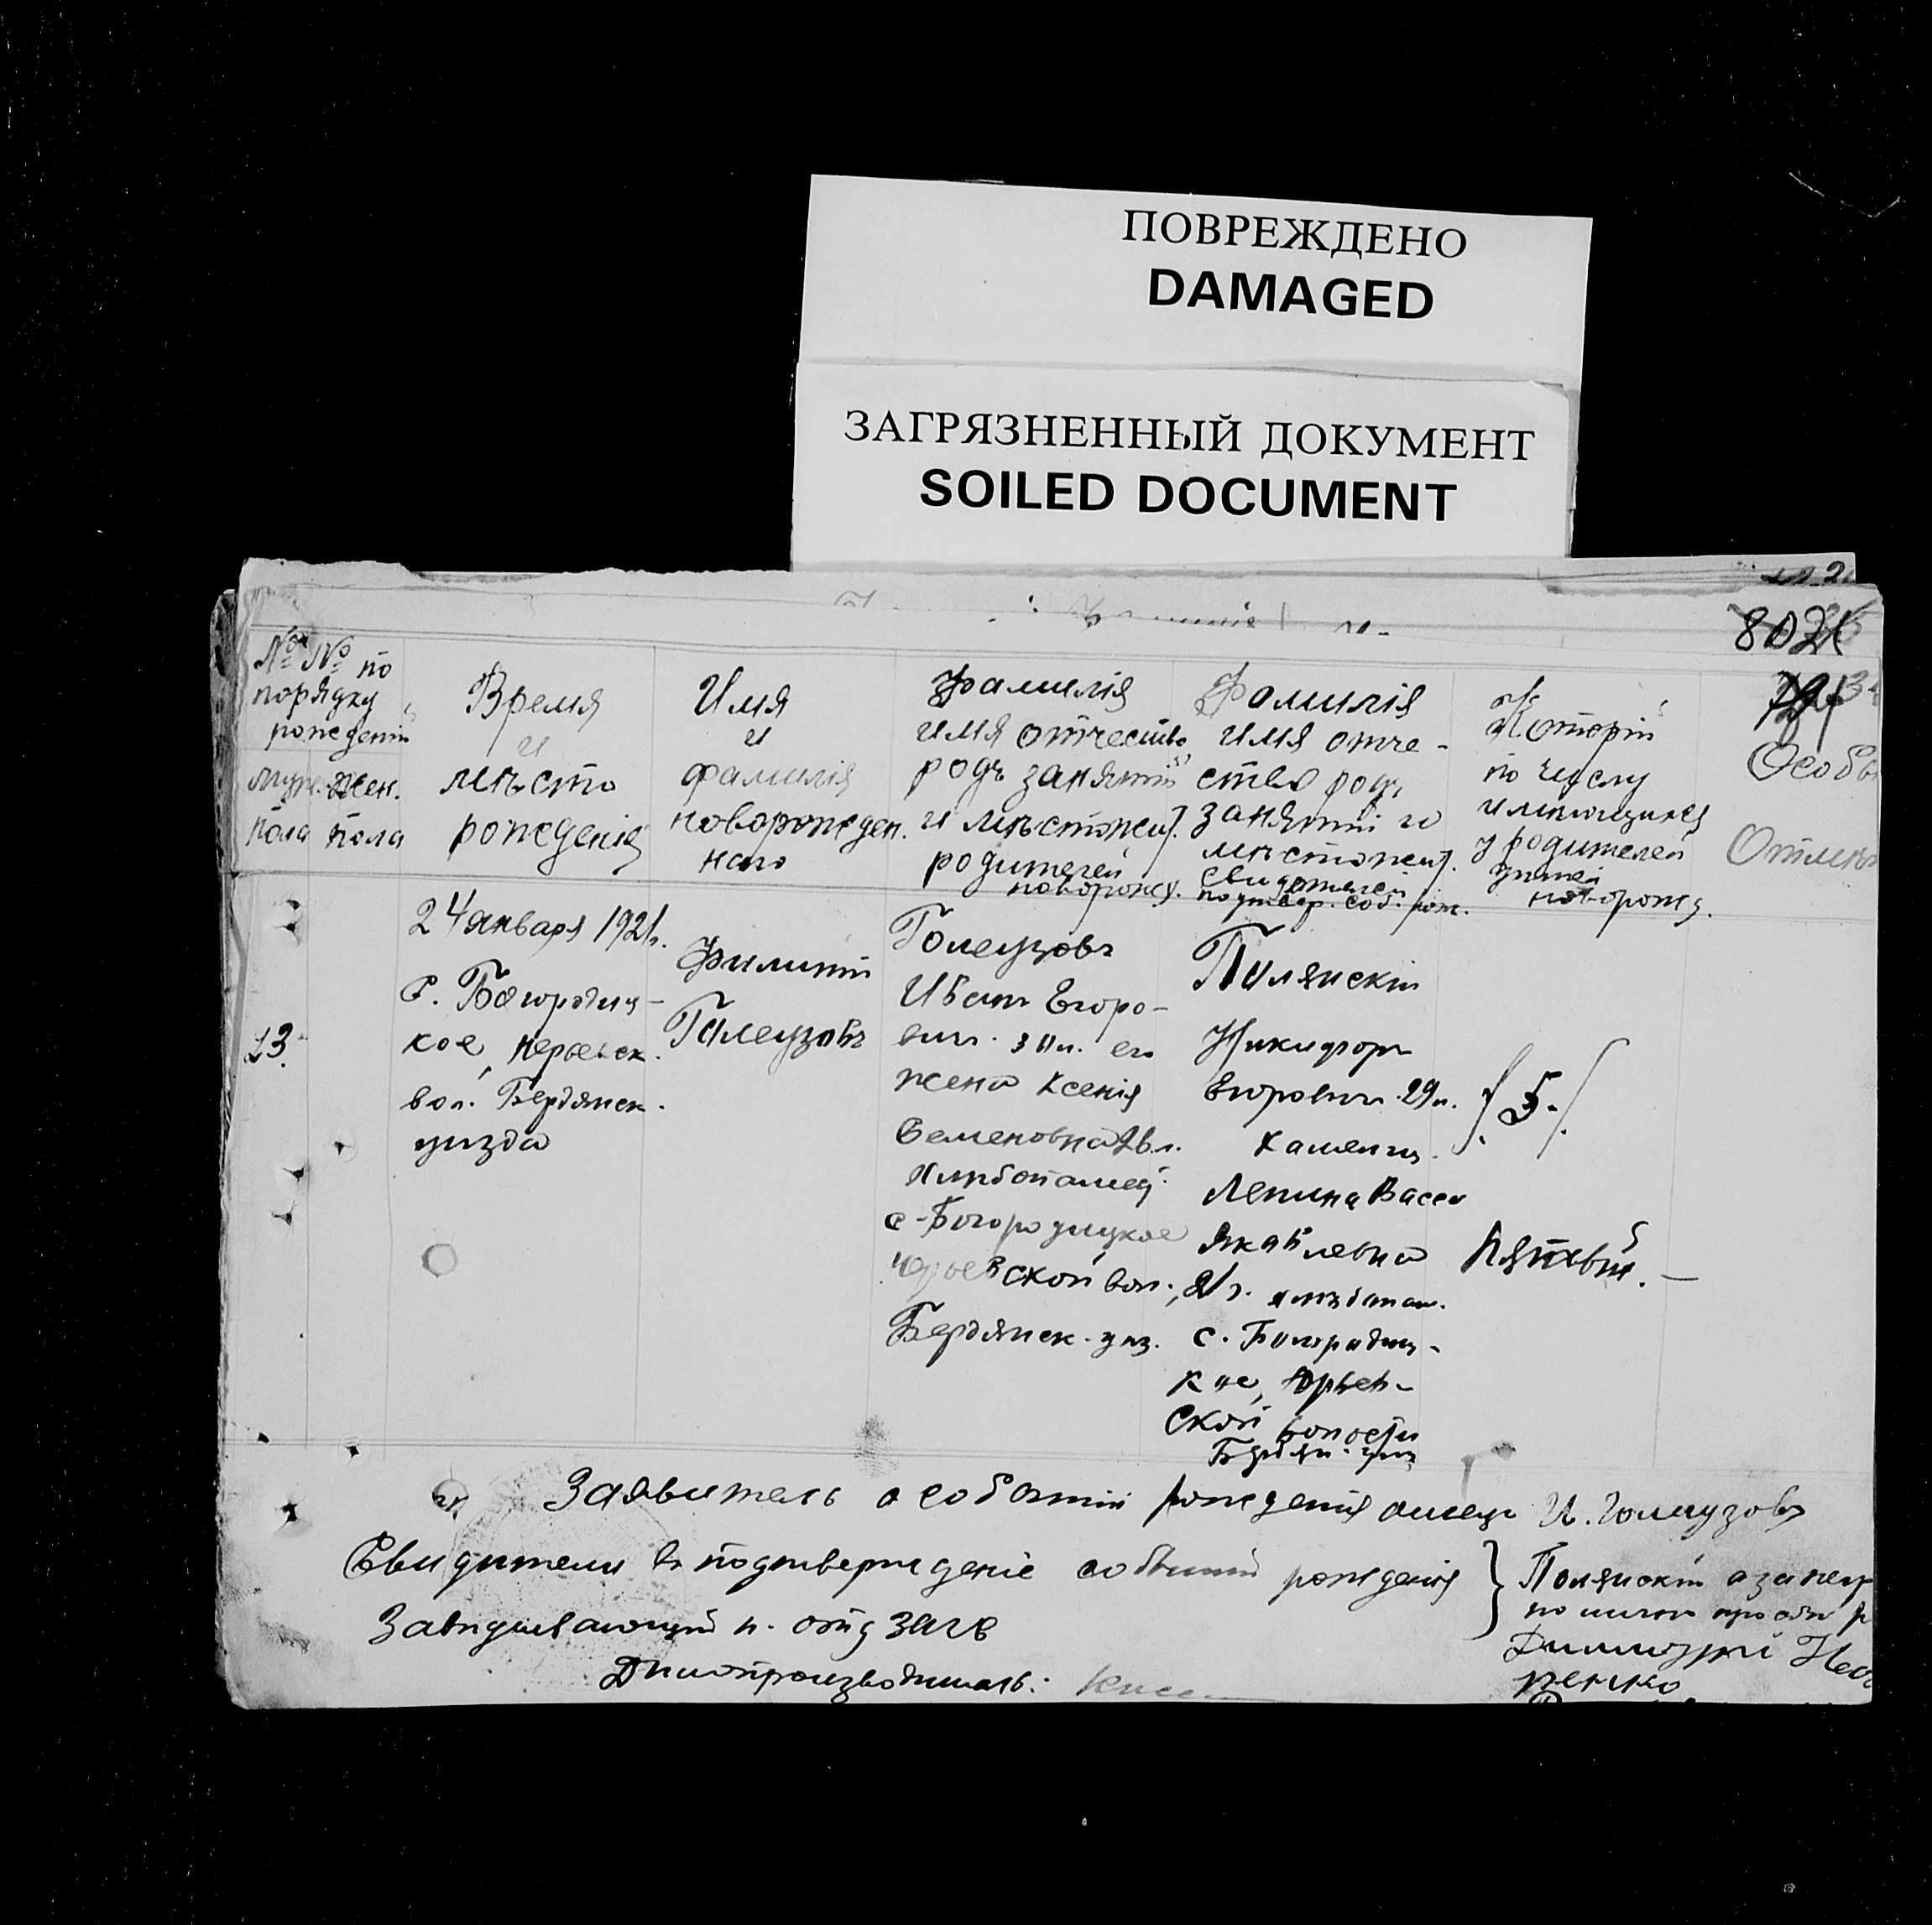 ПОВРЕЖДЕНО
DAMAGED
ЗАГРЯЗНЕННЫЙ ДОКУМЕНТ
SOILED DOCUMENT
№№ по
порядку
рожденій
муж. жен.
пола пола
Время
и
мѣсто
рожденія
Имя
и
фамилія
новорожден.
наго
Фамилія
имя отчество
родъ занятій
и мѣстожит.
родителей
новорожд.
Фамилія
имя отче-
ство родъ
занятій и
мѣстожит.
свидетелей
подтвер. соб. рож.
Который
по числу
имѣющихся
у родителей
дѣтей
новорожд.
Особы
Отмѣт
23.
24 января 1921г.
с. Богородиц-
кое, Юрьевск.
вол. Бердянск.
уѣзда
Филиппъ
Голеузовъ
Голеузовъ
Иванъ Егоро-
вич. 30л. его
жена Ксенія
Семеновна 28л.
хлѣбопашец.
с. Богородицкое
Юрьевской вол.,
Бердянск. уѣз.
Полянскій
Никифоръ
Егорович. 29л.
Яковлевна
21г. хлѣбопаш.
с. Богородиц-
кое, Юрьев-
ской волости
Бердян. уѣз.
/5./
Пятый. —
Заявитель о событіи рожденія отецъ И. Голеузовъ
Свидѣтели въ подтвержденіе событій рожденія } Полянскій а за негр
по личн просьбѣ р
Завѣдывающій п. отд загс
Дѣлопроизводитель: